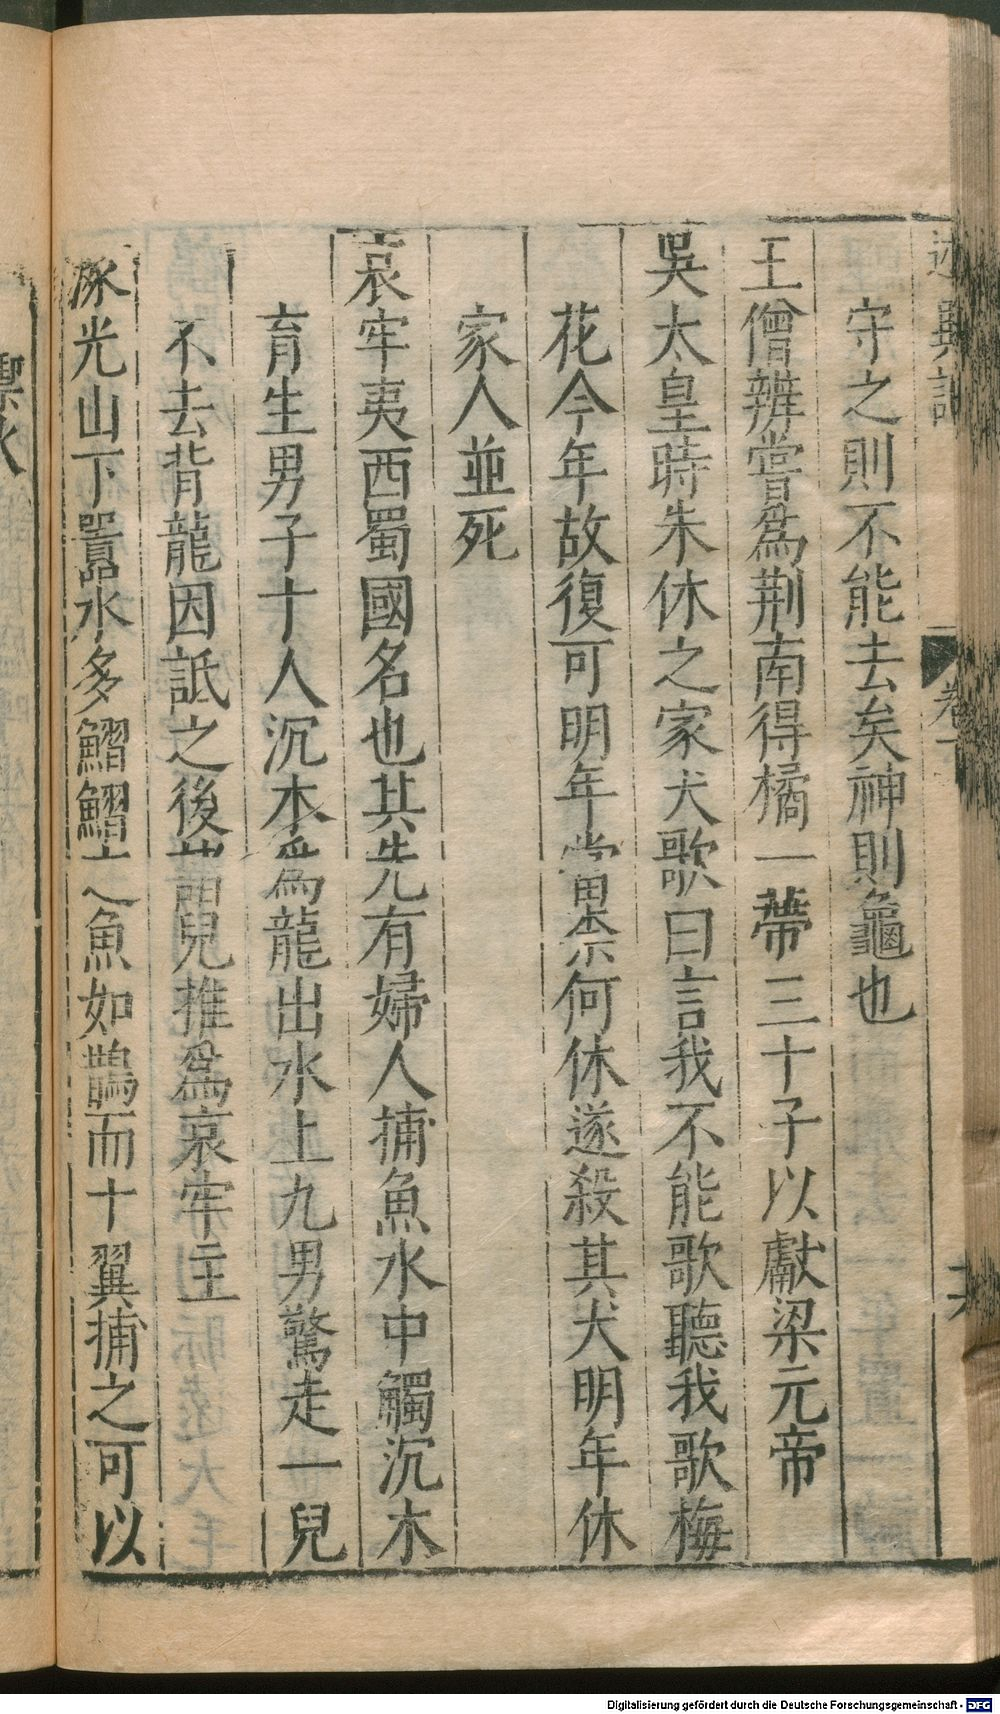 述異記 卷下
守之則不能去矣神則龜也
王僧辨嘗爲荆南得橘一蔕三十子以獻梁元帝
吳太皇時朱休之家犬歌曰言我不能歌聽我歌梅
花今年故復可明年當柰何休遂殺其犬明年休
家人並死
哀牢夷西蜀國名也其先有婦人捕魚水中觸沉木
育生男子十人沉木爲龍出水上九男驚走一兒
不去背龍因䑛之後諸兒推爲哀牢主
涿光山下嚻水多鰼鰼之魚如鵲而十翼捕之可以
禦火
Digitalisierung gefördert durch die Deutsche Forschungsgemeinschaft - DFG